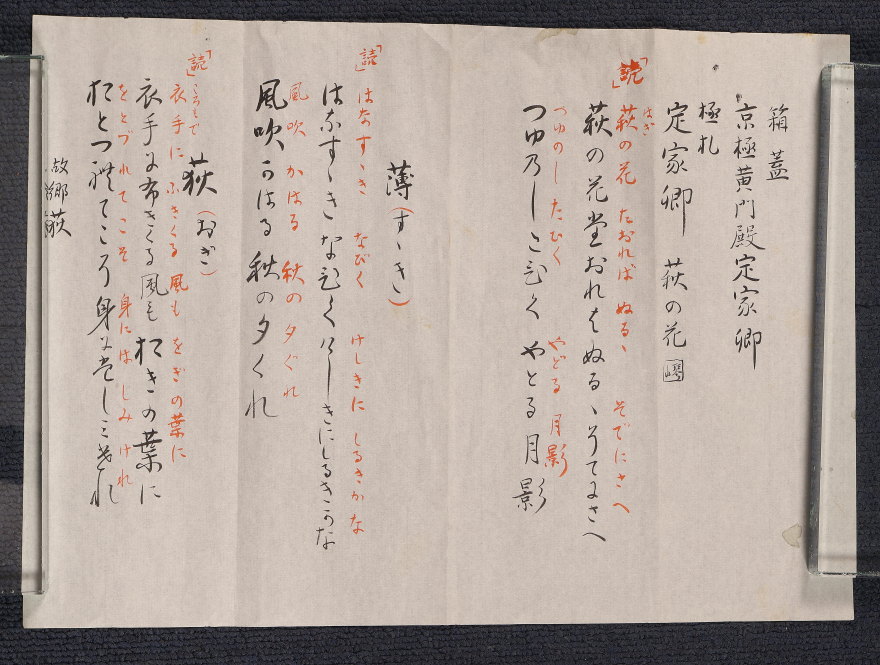 箱 蓋
京極黄門殿定家卿
極札
定家卿 萩の花
「読」
はぎ
萩の花 たおれば ぬるゝ そでにさへ
萩の花 堂おれはぬるゝ そてにさへ
つゆのしたひく やどる 月影
つゆ乃したひく やとる月影
薄(すゝき)
「読」はなすゝき なびく けしきに しるきかな
はなすゝき なひくけしきにしるきかな
風吹 かはる 秋の 夕ぐれ
風吹かはる 秋の夕くれ
荻(おぎ)
「読」ころもで
衣手に ふきくる 風も をぎの葉に
衣手に布きくる風も おきの葉に
をとづれてこそ 身には しみけれ
おとつ礼てこそ 身に
故郷荻